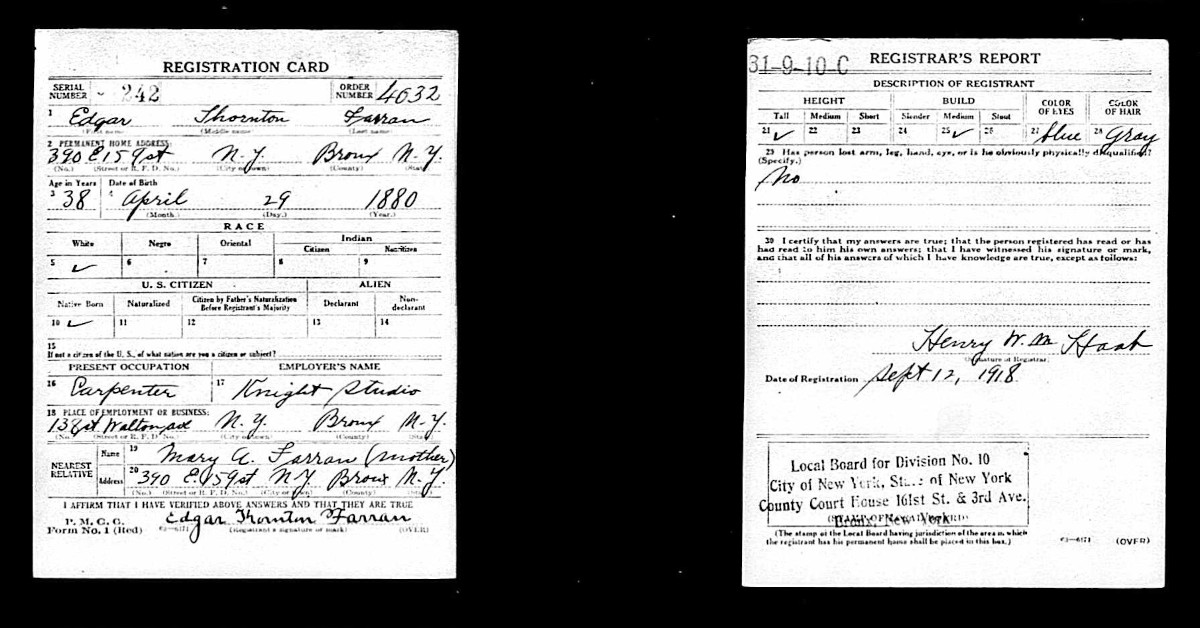 REGISTRATION CARD
SERIAL NUMBER 242 ORDER NUMBER 4632
1 Edgar Thornton Farran
(First name) (Middle name) (Last name)
2 PERMANENT HOME ADDRESS:
390 E 159 st N.Y. Bronx N.Y.
(No.) (Street or R. F. D. No.) (City or town) (County) (State)
Age in Years Date of Birth
3 38 4 April 29 1880
(Month.) (Day.) (Year.)
RACE
White Negro Oriental Indian
Citizen Noncitizen
5 ✓ 6 7 8 9
U. S. CITIZEN ALIEN
Native Born Naturalized Citizen by Father's Naturalization Before Registrant's Majority Declarant Non-declarant
10 ✓ 11 12 13 14
15
If not a citizen of the U. S., of what nation are you a citizen or subject?
PRESENT OCCUPATION EMPLOYER'S NAME
16 Carpenter 17 Knight Studio
18 PLACE OF EMPLOYMENT OR BUSINESS:
138 st Walton N.Y. Bronx N.Y.
(No.) (Street or R. F. D. No.) (City or town) (County) (State)
NEAREST RELATIVE Name 19 Mary A. Farran (mother)
Address 20 390 E. 159 st N.Y. Bronx N.Y.
(No.) (Street or R. F. D. No.) (City or town) (County) (State)
I AFFIRM THAT I HAVE VERIFIED ABOVE ANSWERS AND THAT THEY ARE TRUE
P. M. G. O.
Form No. 1 (Red) Edgar Thornton Farran
(Registrant's signature or mark) (OVER)
31-9-10-C REGISTRAR'S REPORT
DESCRIPTION OF REGISTRANT
HEIGHT BUILD COLOR OF EYES COLOR OF HAIR
Tall Medium Short Slender Medium Stout
21 ✓ 22 23 24 25 ✓ 26 27 blue 28 Gray
29 Has person lost arm, leg, hand, eye, or is he obviously physically disqualified?
(Specify.)
No
30 I certify that my answers are true; that the person registered has read or has
had read to him his own answers; that I have witnessed his signature or mark,
and that all of his answers of which I have knowledge are true, except as follows:
Henry W. M. Haab
(Signature of Registrar)
Date of Registration Sept 12, 1918
Local Board for Division No. 10
City of New York, State of New York
County Court House 161st St. & 3rd Ave.
Bronx, New York
(STAMP OF LOCAL BOARD)
(The stamp of the Local Board having jurisdiction of the area in which
the registrant has his permanent home shall be placed in this box.)
(OVER)